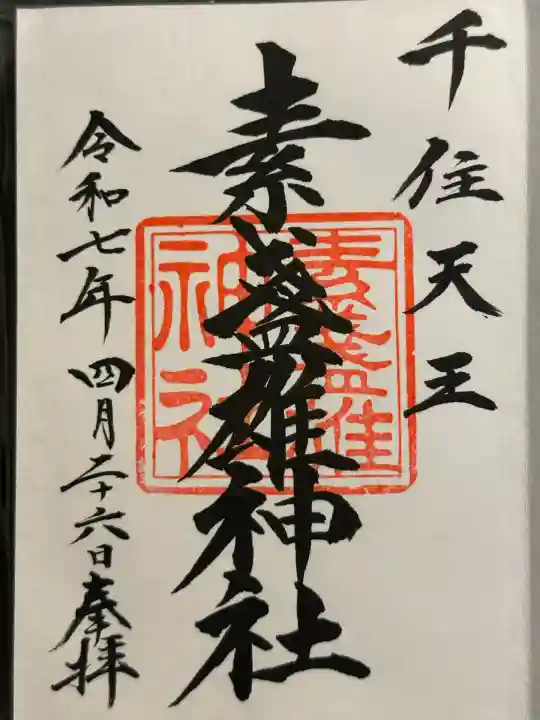 千住天王
素盞雄神社
素盞雄神社
令和七年 四月二十六日奉拝